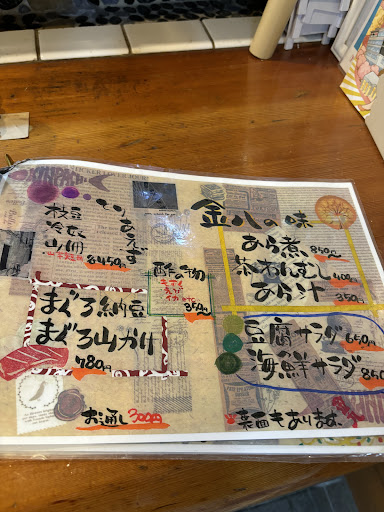 金八の味
あら煮 850円
茶わんむし 400円
あら汁 350円
豆腐サラダ 650円
海鮮サラダ 850
とりあえず
枝豆
冷奴
山冊
各450円
酢の物
350円
まぐろ納豆
まぐろ山かけ
780円
お通し 300円
裏面もあります。